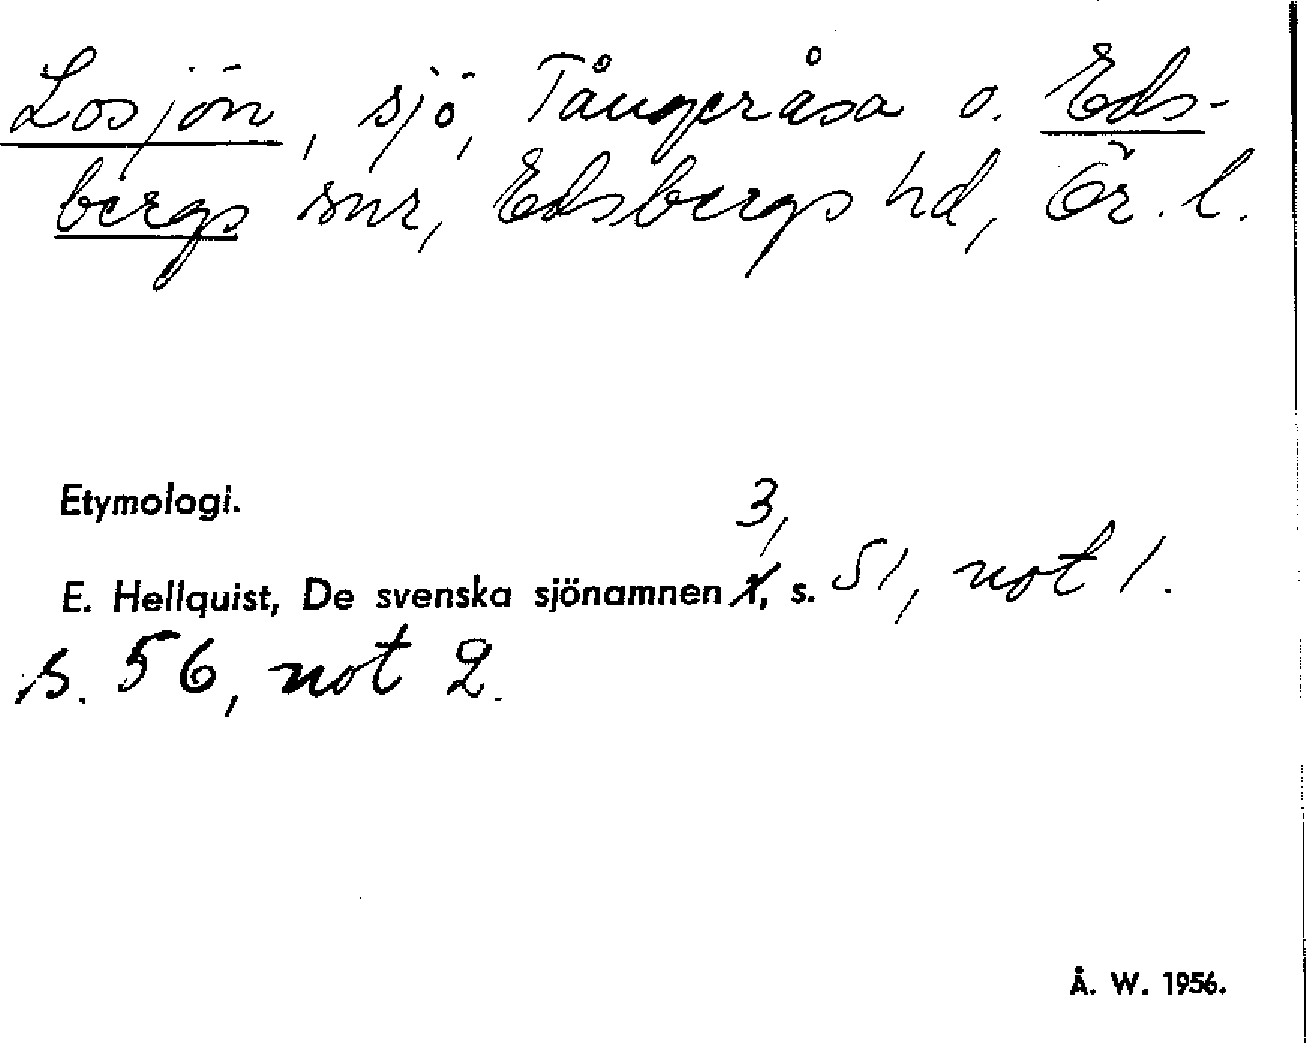 Losjön, sjö, Tångeråsa o. Eds-
bergs snr, Edsbergs hd, Ör. l.
Etymologi.
3,
E. Hellquist, De svenska sjönamnen 1, s. 51, not 1.
s. 56, not 2.
Å. W. 1956.